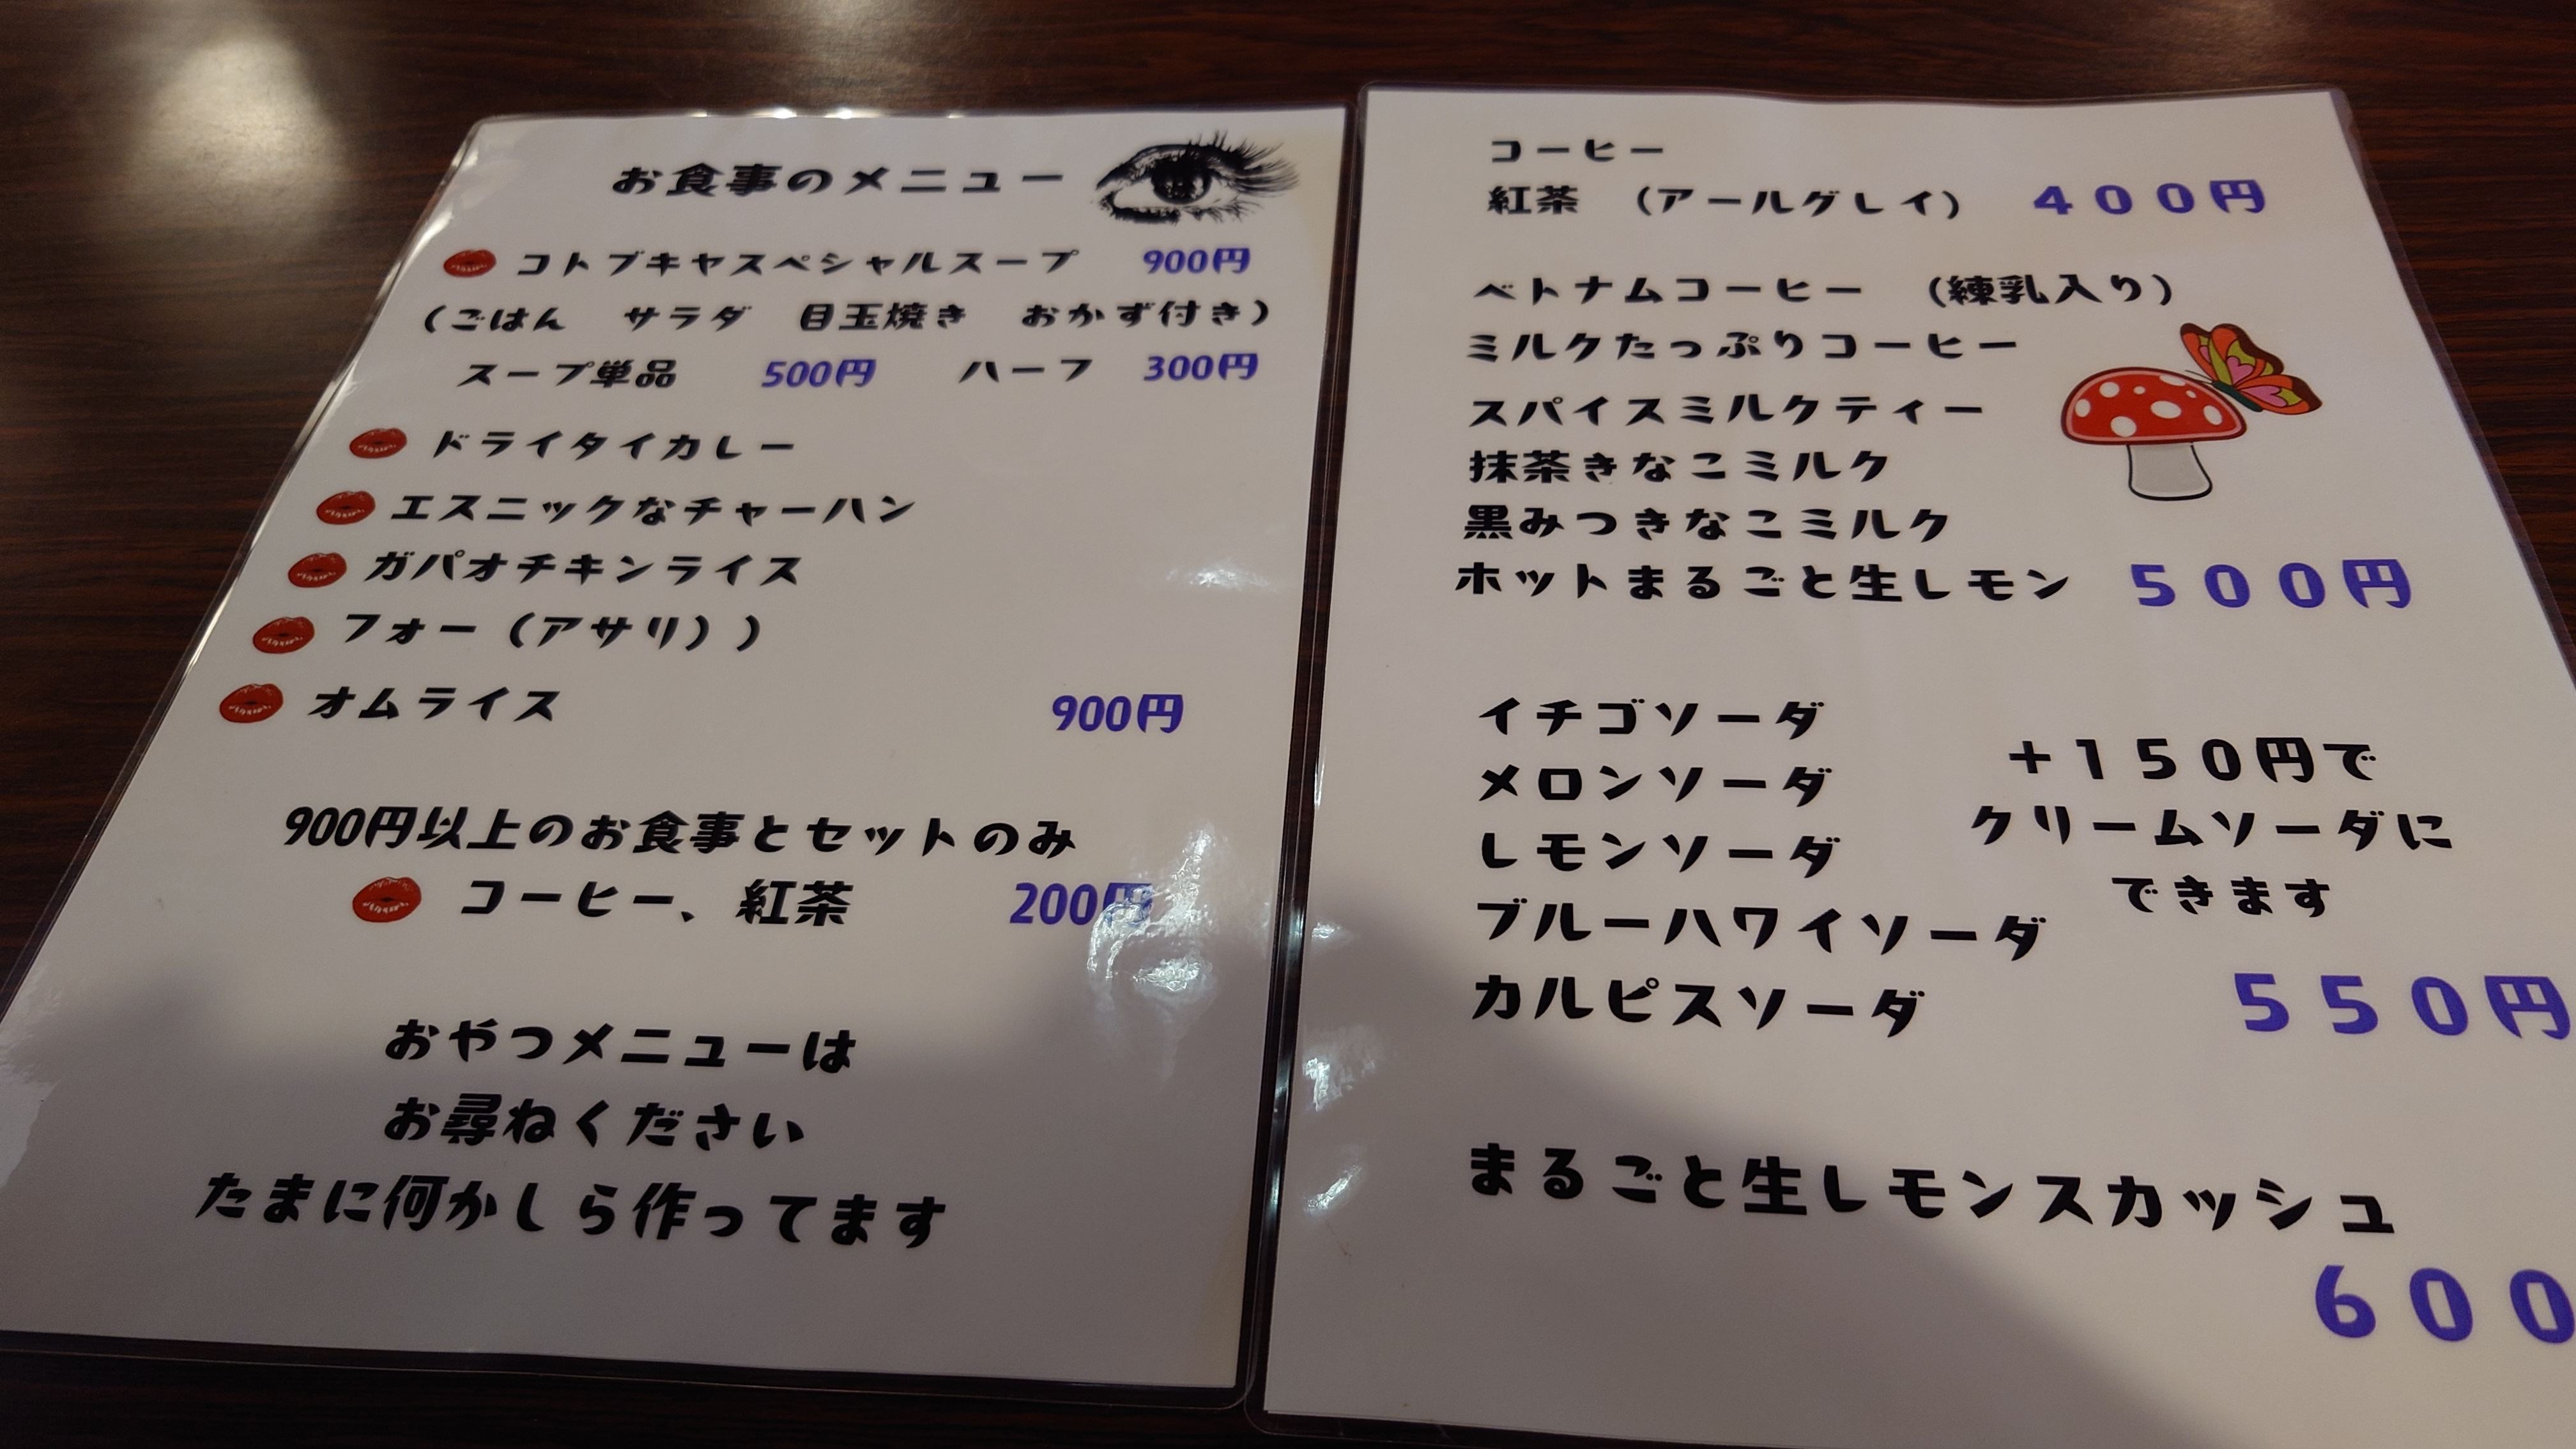 お食事のメニュー
コトブキヤスペシャルスープ 900円
(ごはん サラダ 目玉焼き おかず付き)
スープ単品 500円 ハーフ 300円
ドライタイカレー
エスニックなチャーハン
ガパオチキンライス
フォー(アサリ))
オムライス 900円
900円以上のお食事とセットのみ
コーヒー、紅茶 200円
おやつメニューは
お尋ねください
たまに何かしら作ってます
コーヒー
紅茶 (アールグレイ) 400円
ベトナムコーヒー (練乳入り)
ミルクたっぷりコーヒー
スパイスミルクティー
抹茶きなこミルク
黒みつきなこミルク
ホットまるごと生レモン 500円
イチゴソーダ
メロンソーダ
レモンソーダ
ブルーハワイソーダ
カルピスソーダ
+150円で
クリームソーダに
できます
550円
まるごと生レモンスカッシュ
600